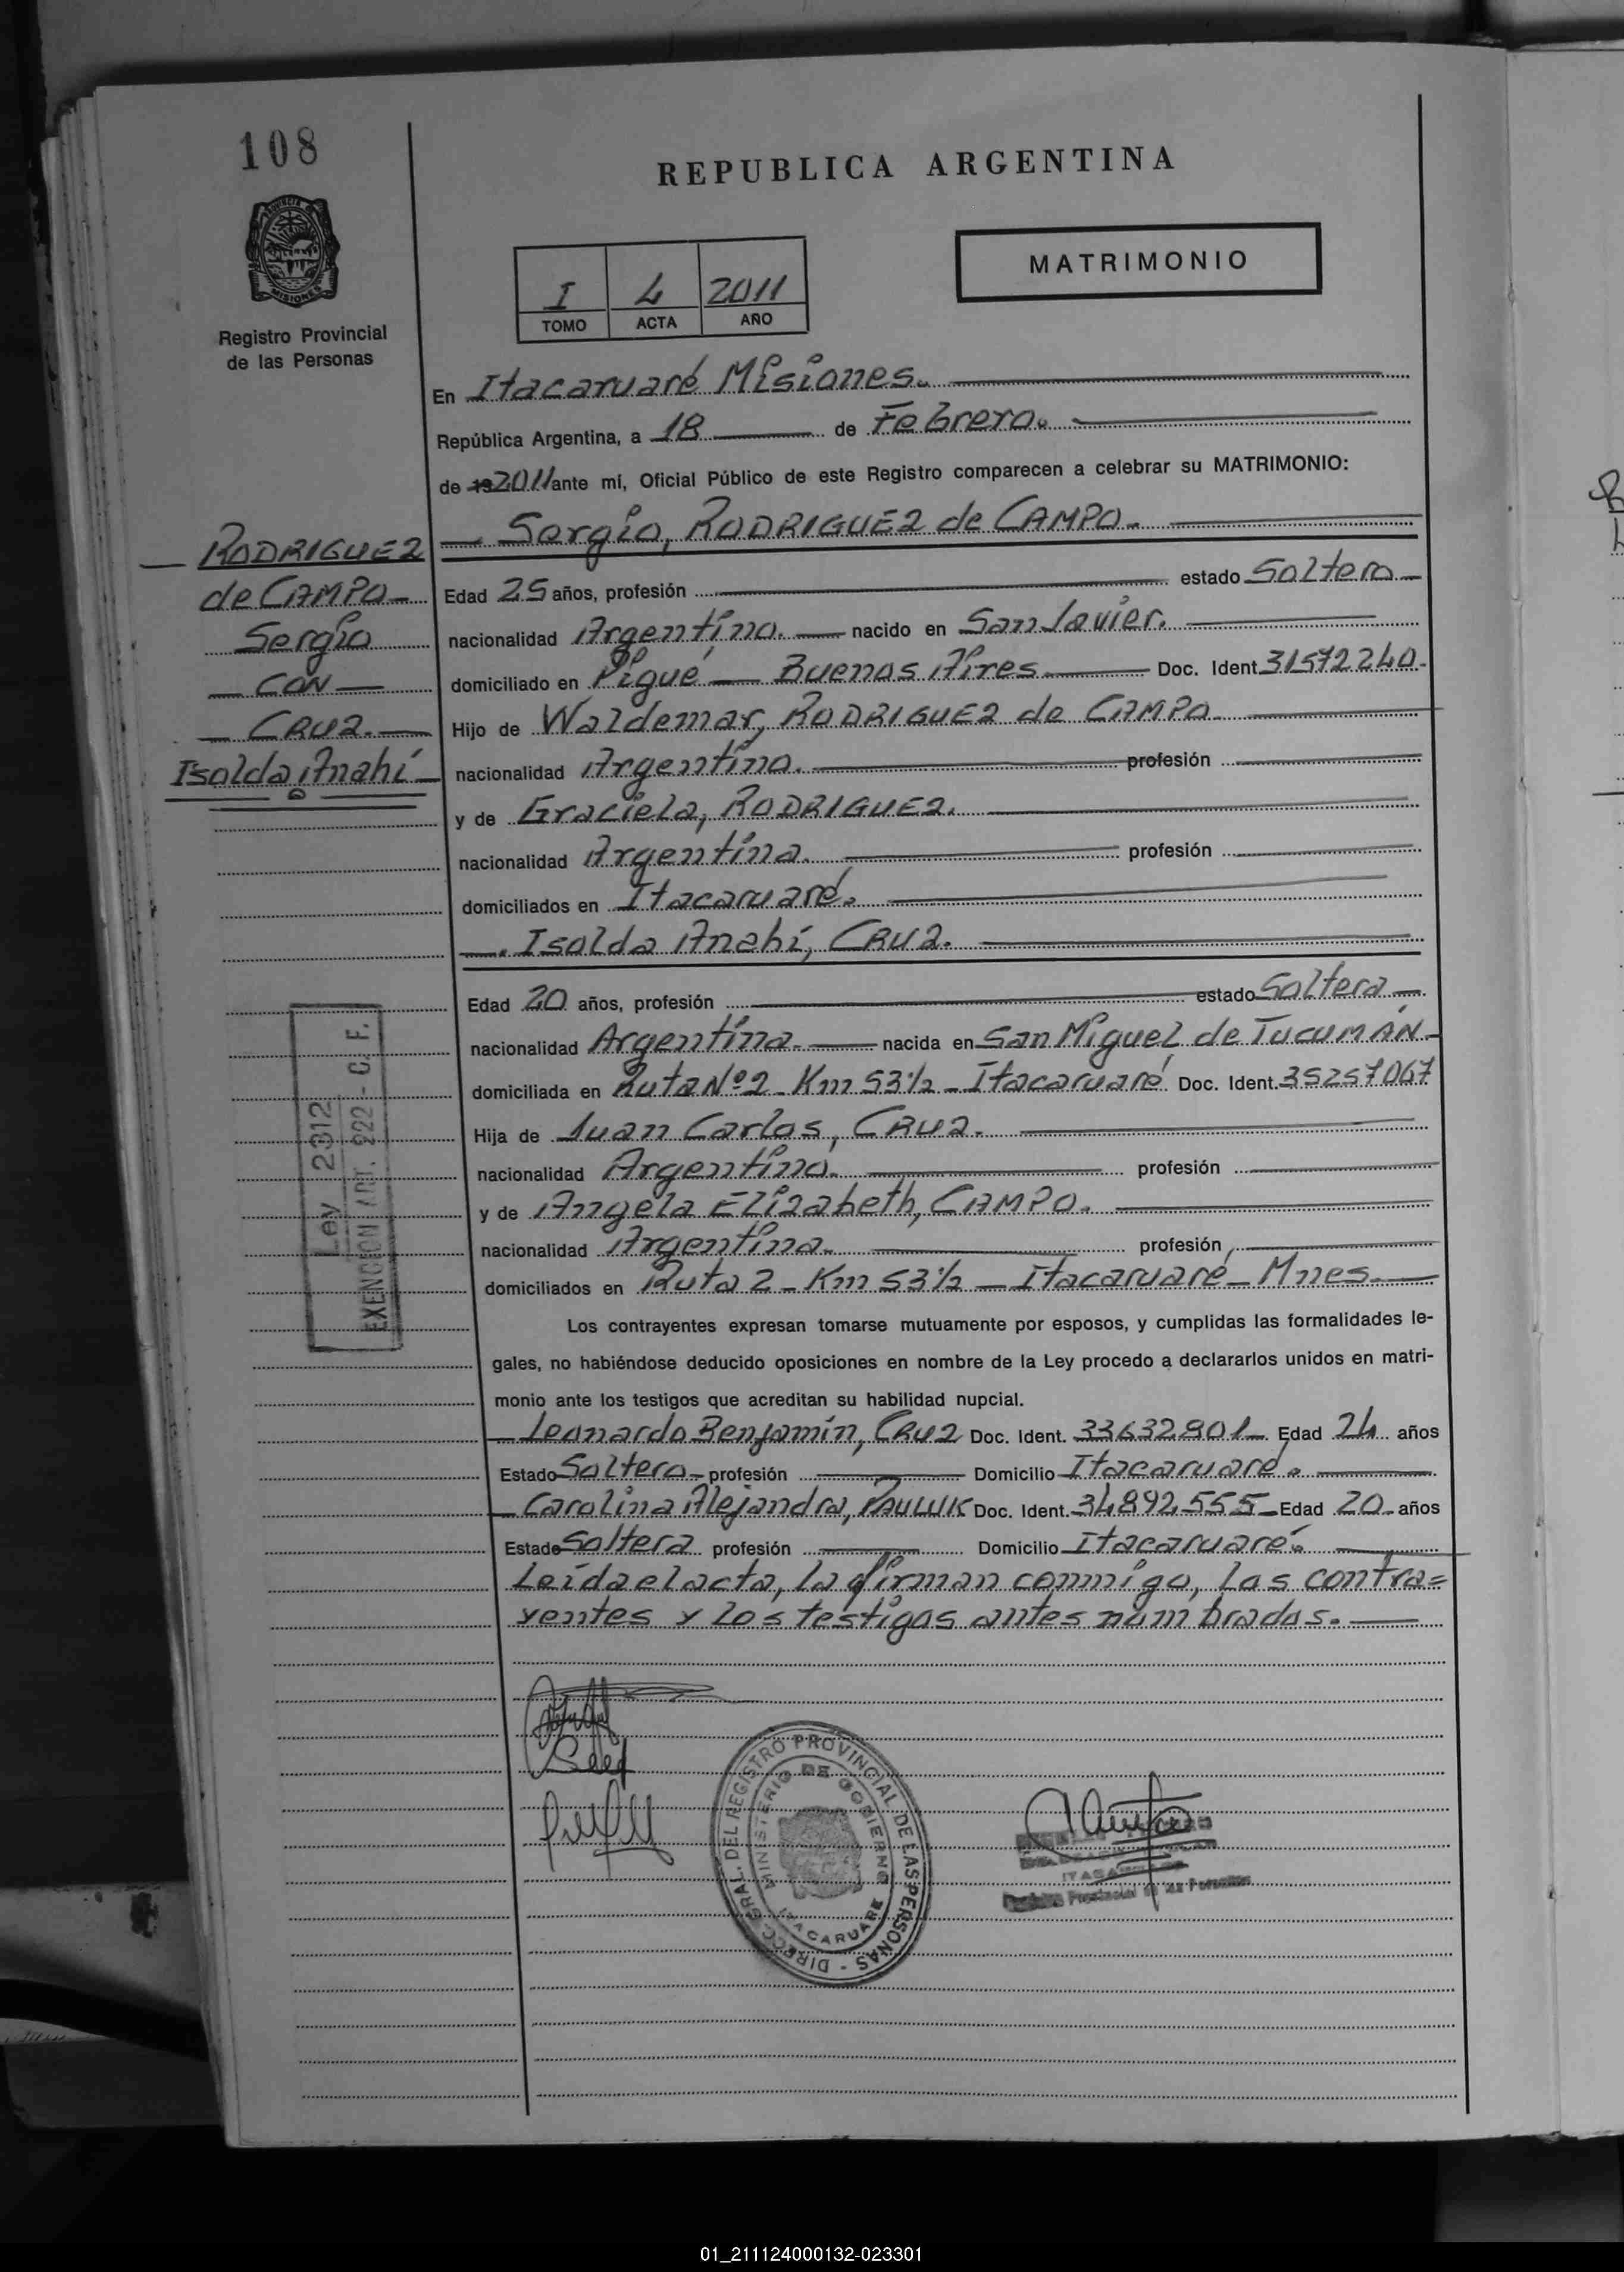 108
REPUBLICA ARGENTINA
PROVINCIA DE
MISIONES
Registro Provincial
de las Personas
MATRIMONIO
I 4 2011
TOMO ACTA AÑO
En Itacaruaré Misiones.
República Argentina, a 18 de Febrero.
de 19 2011 ante mí, Oficial Público de este Registro comparecen a celebrar su MATRIMONIO:
Sergio, RODRIGUEZ de CAMPO.
RODRIGUEZ
de CAMPO
Sergio
CON
CRUZ.
Isolda Anahí
Edad 25 años, profesión estado Soltero
nacionalidad Argentina. nacido en San Javier.
domiciliado en Pigué Buenos Aires. Doc. Ident 31572240.
Hijo de Waldemar, RODRIGUEZ de CAMPO.
nacionalidad Argentino. profesión
y de Graciela, RODRIGUEZ.
nacionalidad Argentina. profesión
domiciliados en Itacaruaré.
Isolda Anahí, CRUZ.
Edad 20 años, profesión estado Soltera
nacionalidad Argentina. nacida en San Miguel de TUCUMÁN
domiciliada en Ruta Nº 2 - Km 53½ - Itacaruaré Doc. Ident. 35257067
Hija de Juan Carlos, CRUZ.
nacionalidad Argentino. profesión
y de Angela Elizabeth, CAMPO.
nacionalidad Argentina. profesión
domiciliados en Ruta 2 - Km 53½ - Itacaruaré - Mnes.
Ley 2312
EXENCION ART. 222 - C. F.
Los contrayentes expresan tomarse mutuamente por esposos, y cumplidas las formalidades le-
gales, no habiéndose deducido oposiciones en nombre de la Ley procedo a declararlos unidos en matri-
monio ante los testigos que acreditan su habilidad nupcial.
Leonardo Benjamín, CRUZ Doc. Ident. 33632801 Edad 24 años
Estado Soltero profesión Domicilio Itacaruaré.
Carolina Alejandra, PAULUK Doc. Ident. 34892555 Edad 20 años
Estado Soltera profesión Domicilio Itacaruaré.
Leída el acta, la firman conmigo, los contra=
yentes y los testigos antes nombrados.
DIRECC. GRAL. DEL REGISTRO PROVINCIAL DE LAS PERSONAS -
MINISTERIO DE GOBIERNO
ITACARUARE
Provincial de las Personas
01_211124000132-023301